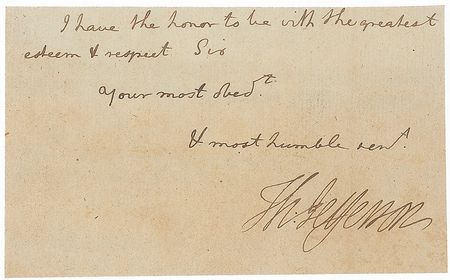 I have the honor to be with the greatest
esteem & respect Sir
Your most obedt.
& most humble servt.
Th: Jefferson